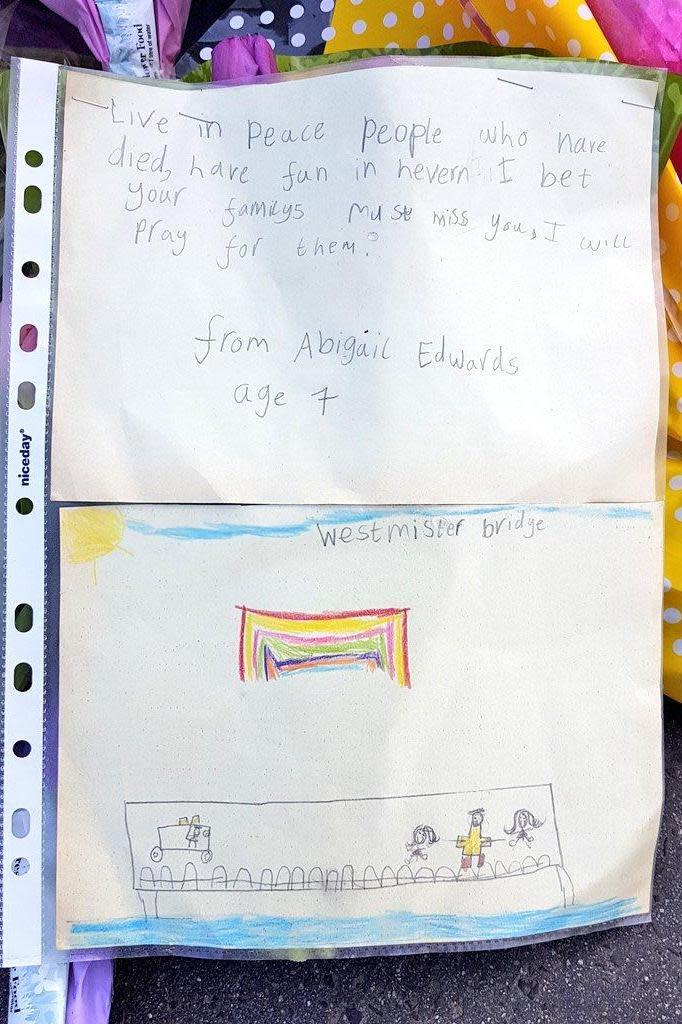 Live in peace people who have
died, have fun in hevern I bet
your familys must miss you, I will
pray for them.
from Abigail Edwards
age 7
niceday®
westmister bridge